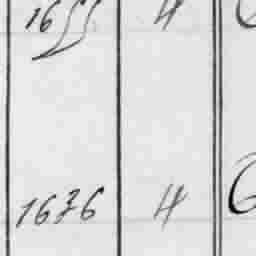 1655 4
1676 4